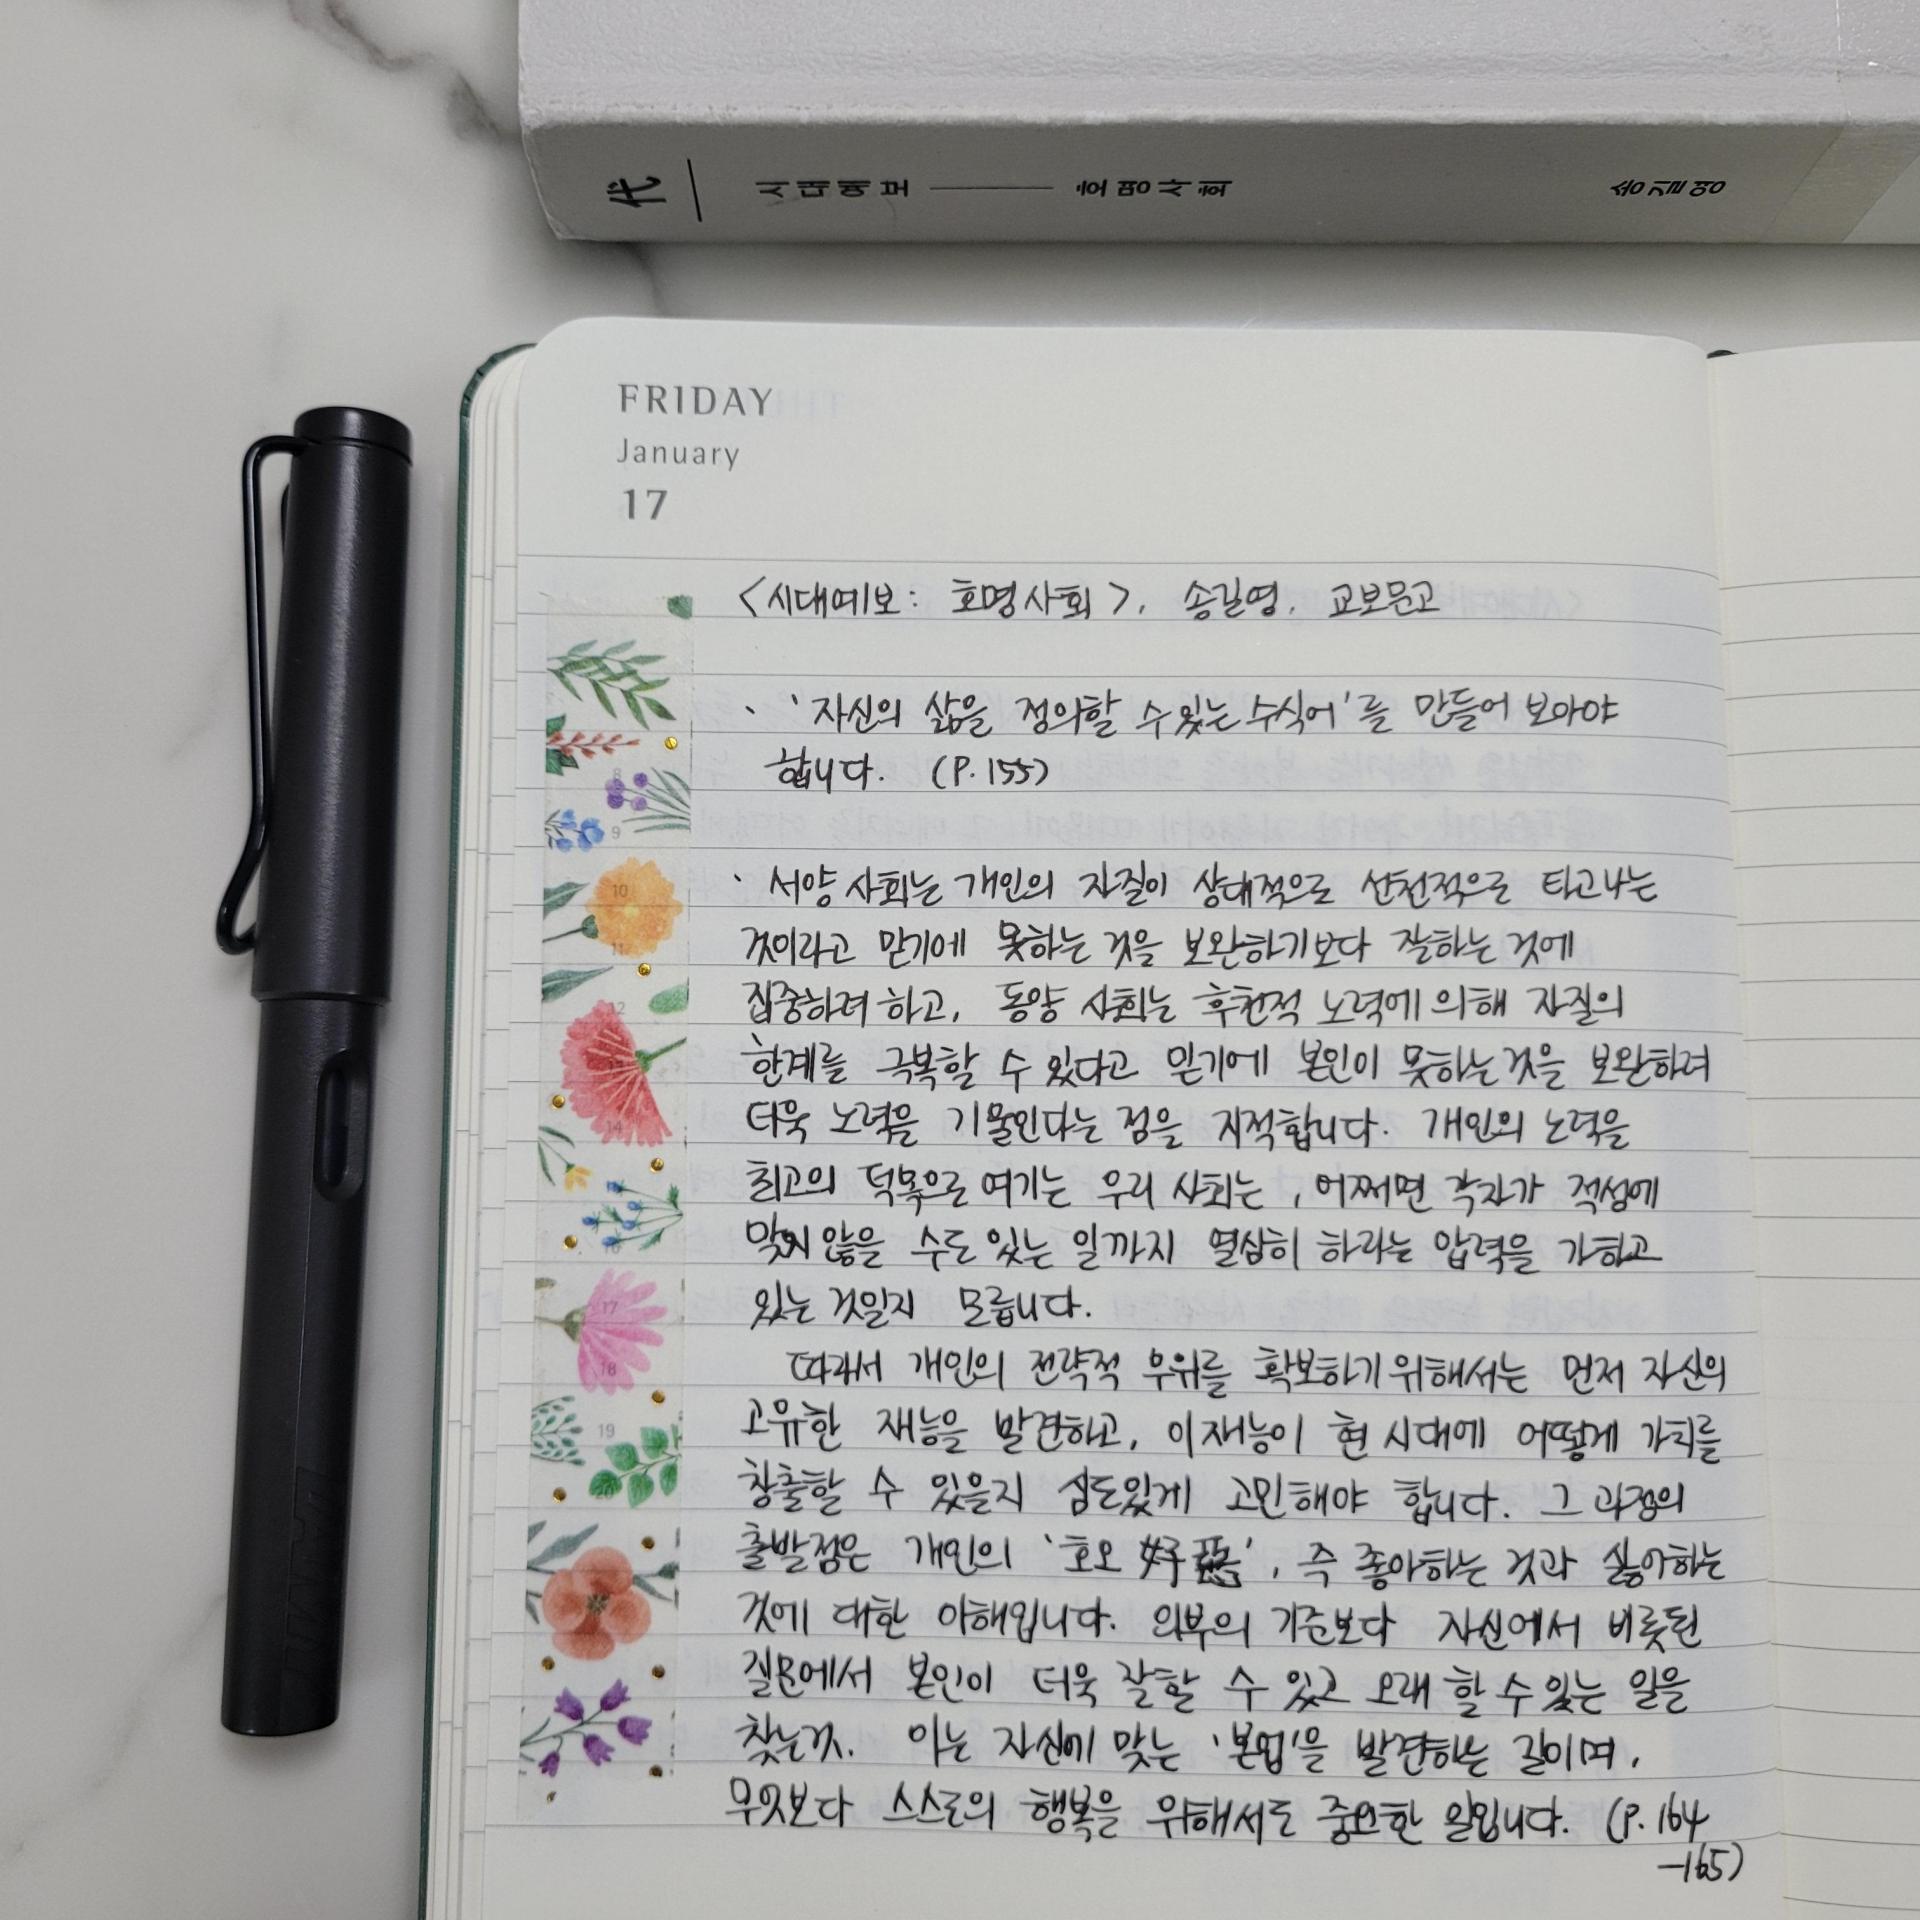 代 시대예보 호명사회 송길영
FRIDAY
January
17
<시대예보: 호명사회>, 송길영, 교보문고
· '자신의 삶을 정의할 수 있는 수식어'를 만들어 보아야
합니다. (P.155)
· 서양 사회는 개인의 자질이 상대적으로 선천적으로 타고나는
것이라고 믿기에 못하는 것을 보완하기보다 잘하는 것에
집중하려 하고, 동양 사회는 후천적 노력에 의해 자질의
한계를 극복할 수 있다고 믿기에 본인이 못하는 것을 보완하려
더욱 노력을 기울인다는 점을 지적합니다. 개인의 노력을
최고의 덕목으로 여기는 우리 사회는, 어쩌면 각자가 적성에
맞지 않을 수도 있는 일까지 열심히 하라는 압력을 가하고
있는 것일지 모릅니다.
따라서 개인의 전략적 우위를 확보하기 위해서는 먼저 자신의
고유한 재능을 발견하고, 이 재능이 현 시대에 어떻게 가치를
창출할 수 있을지 심도있게 고민해야 합니다. 그 과정의
출발점은 개인의 '호오 好惡', 즉 좋아하는 것과 싫어하는
것에 대한 이해입니다. 외부의 기준보다 자신에서 비롯된
질문에서 본인이 더욱 잘할 수 있고 오래 할 수 있는 일을
찾는 것. 이는 자신에 맞는 '본업'을 발견하는 길이며,
무엇보다 스스로의 행복을 위해서도 중요한 일입니다. (P.164
-165)
8
9
10
11
12
13
14
16
17
18
19
20
LAMY